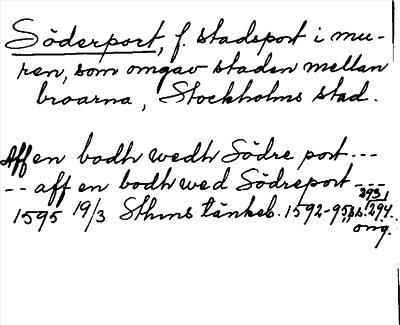 Söderport, f. stadsport i mu-
ren, som omgav staden mellan
broarna, Stockholms stad.
Aff en bodh wedh Södre port ---
-- aff en bodh wed Södreport ---
1595 19/3 Sthms tänkeb. 1592-95, ss. 293, 294.
orig.